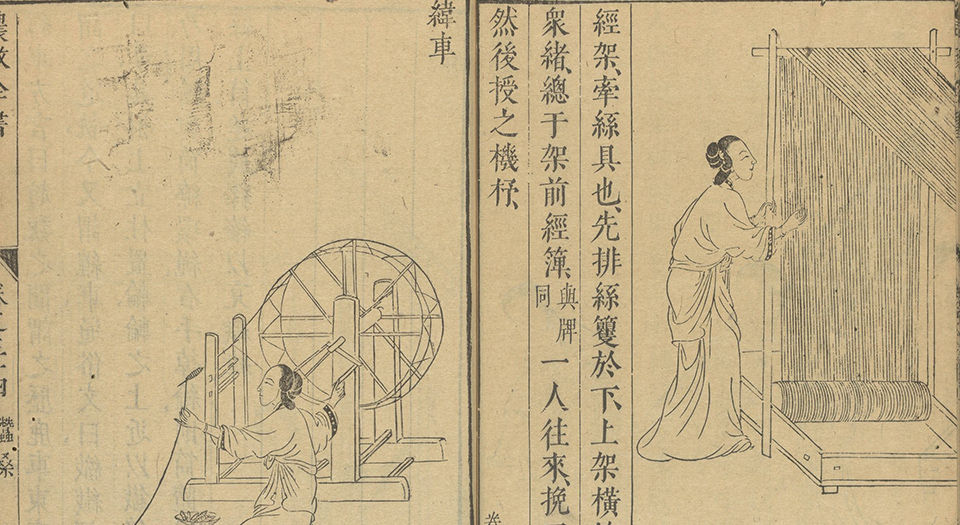 經架、牽絲具也、先排絲籰於下、上架橫
衆緒、總于架前經簰、與牌同一人往來、挽
然後授之機杼、
卷
緯車
農政全書
卷之三十四
蠶桑